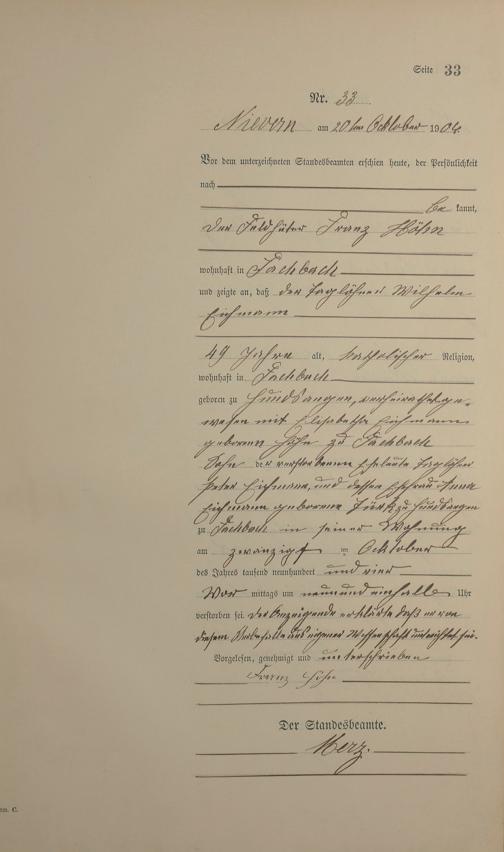 Seite 33
Nr. 33
Nievern am 20ten Ocktober 1904
Vor dem unterzeichneten Standesbeamten erschien heute, der Persönlichkeit
nach
be kannt,
der Feldhüter Franz Höhn
wohnhaft in Fachbach
und zeigte an, daß der Taglöhner Wilhelm
Eichmann
49 Jahre alt, katholischer Religion,
wohnhaft in Fachbach
geboren zu Hundsangen, verheirathet ge-
wesen mit Elisabetha Eichmann
geborenen Höhn zu Fachbach
Sohn der verstorbenen Eheleute Taglöhner
Peter Eichmann, und dessen Ehefrau Anna
Eichmann geborene Türk zu Hundsangen
zu Fachbach in seiner Wohnung
am zwanzigsten Ocktober
des Jahres tausend neunhundert und vier
Vor mittags um neunundeinhalb Uhr
verstorben sei. Der Anzeigende erklärte daß er von
diesem Sterbefalle aus eigener Wissenschaft unterrichtet sei.
Vorgelesen, genehmigt und unterschrieben
Franz Höhn
Der Standesbeamte.
Merz.
C.